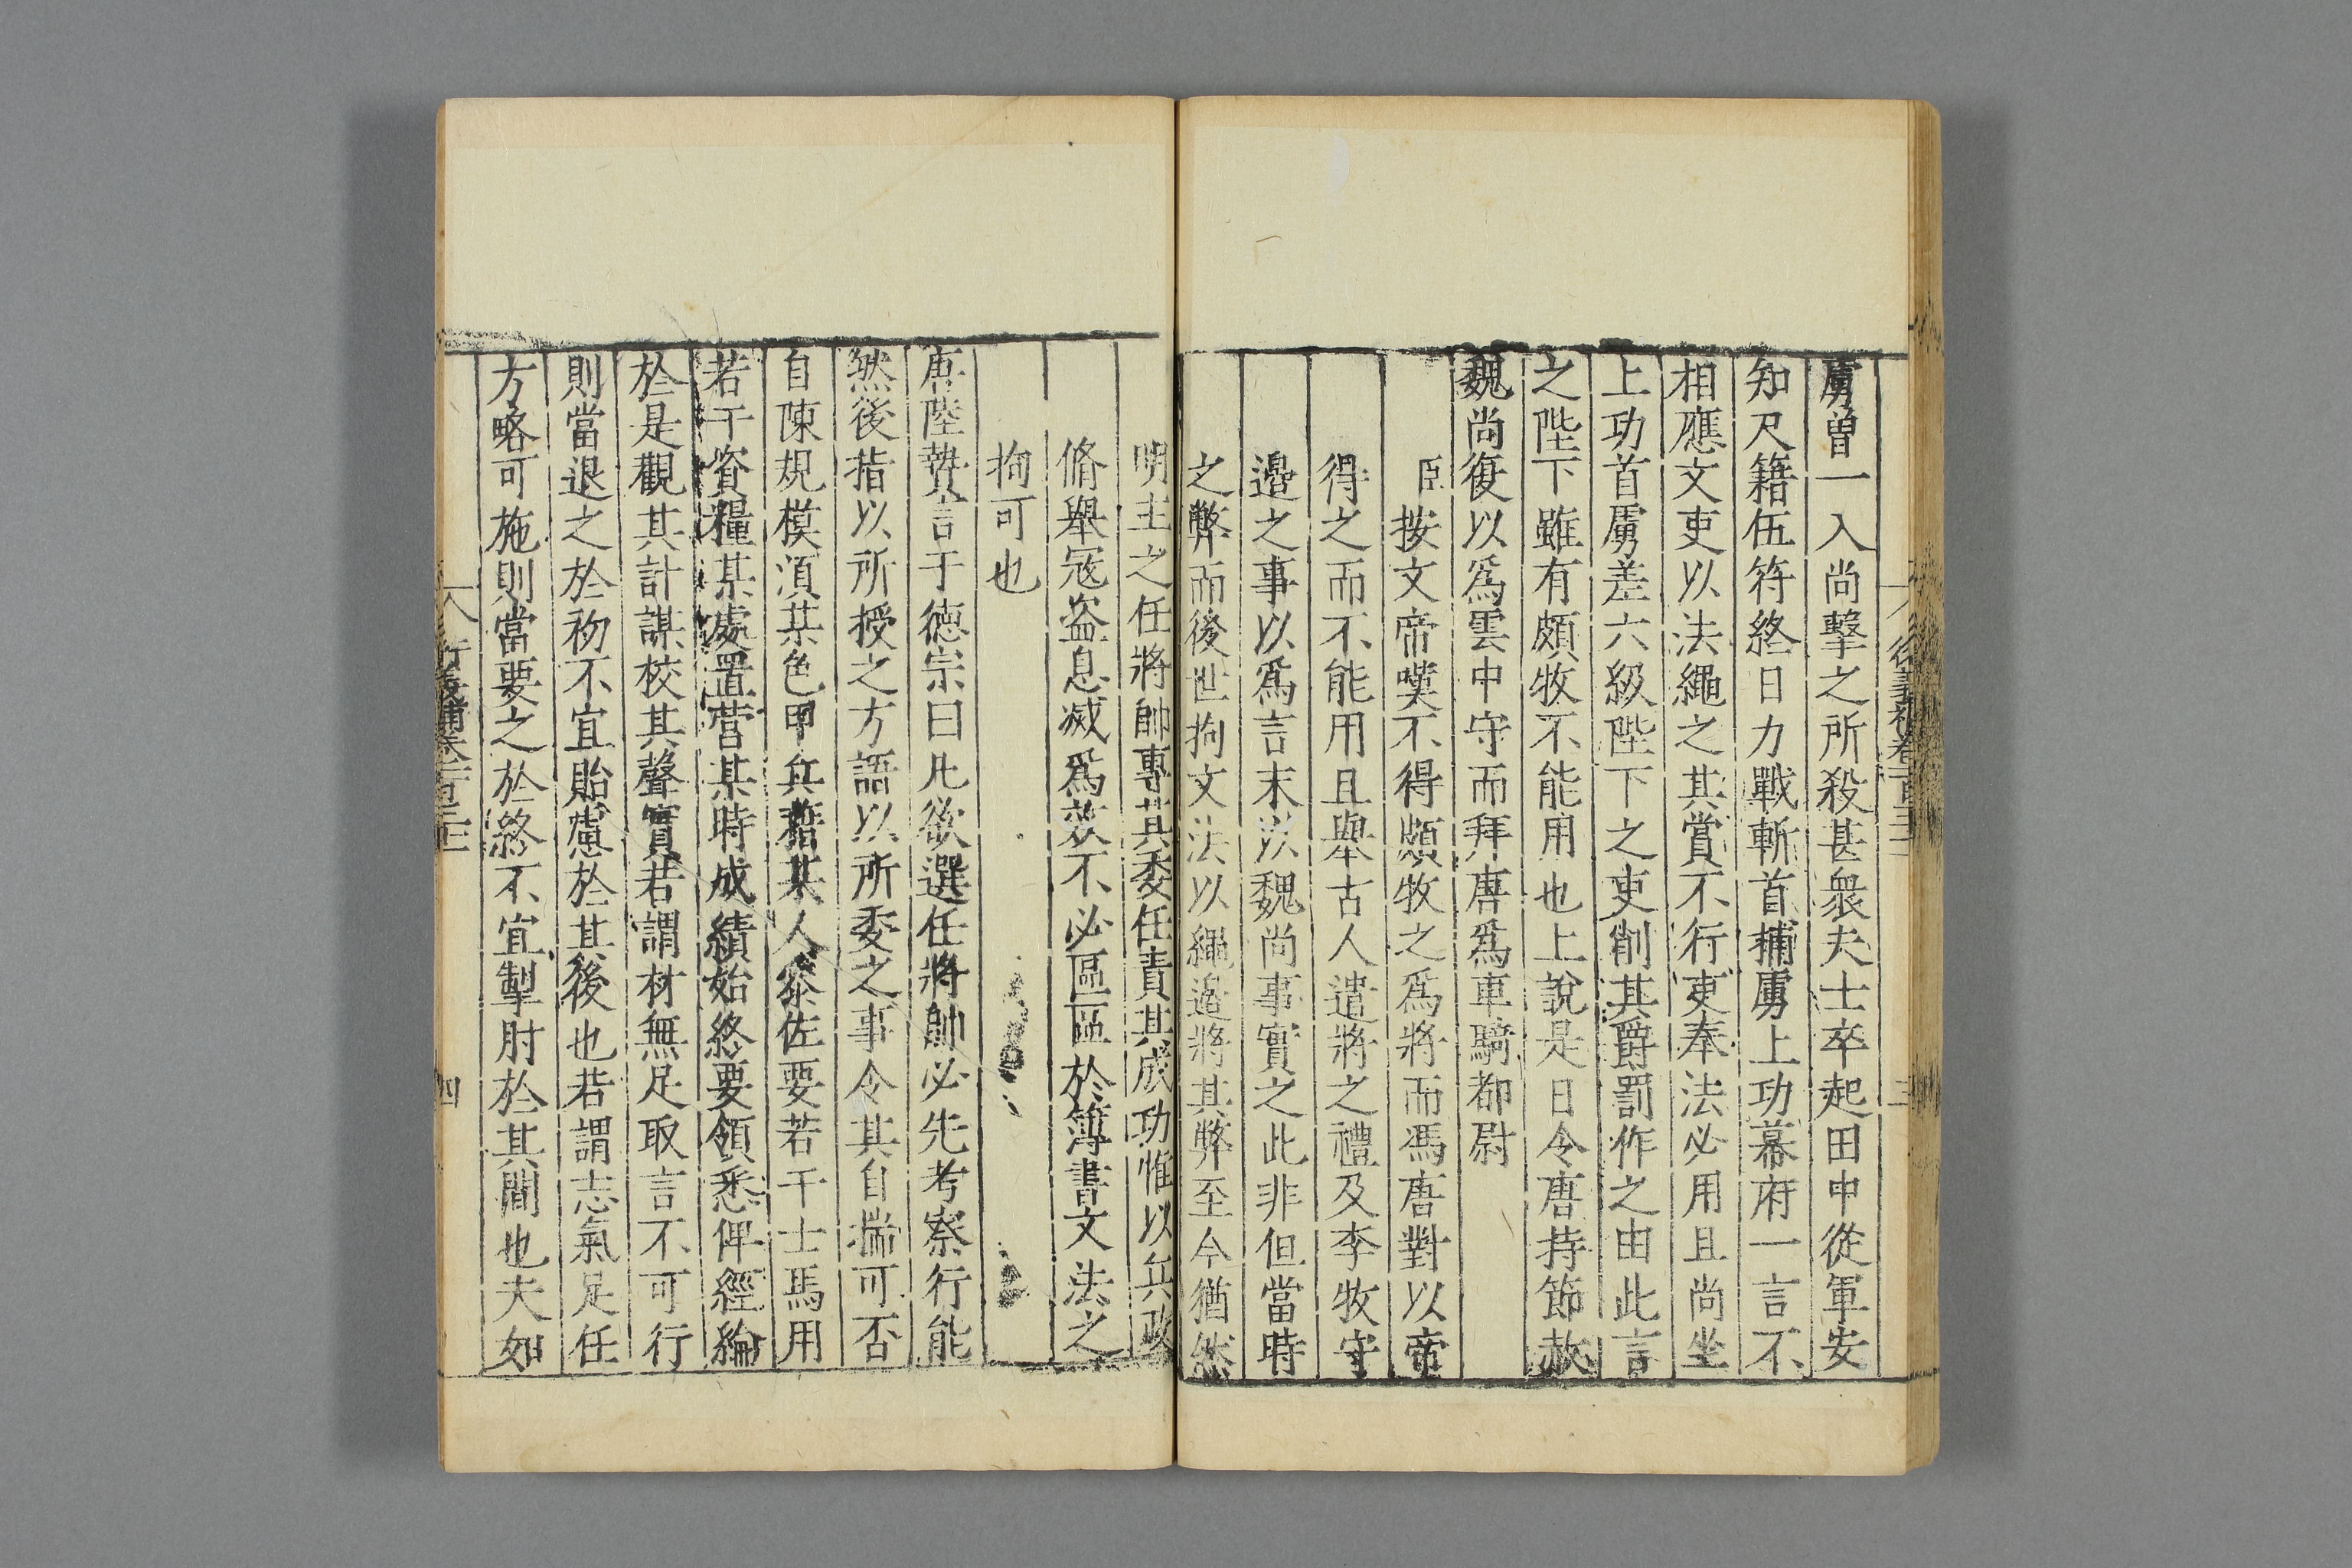 虜曽一入尚擊之所殺甚衆夫士卒起田中從軍安
知尺籍伍符終日力戰斬首捕虜上功幕府一言不
相應文吏以法繩之其賞不行吏奉法必用且尚坐
上功首虜差六級陛下之吏削其爵罰作之由此言
之陛下雖有頗牧不能用也上說是日令唐持節赦
魏尚復以爲雲中守而拜唐爲車騎都尉
臣按文帝嘆不得頗牧之爲將而馮唐對以帝
得之而不能用且舉古人遣將之禮及李牧守
邉之事以爲言末以魏尚事實之此非但當時
之弊而後世拘文法以繩邉將其弊至今猶然
明主之任將帥專其委任責其成功惟以兵政
脩舉寇盗息滅爲效不必區區於簿書文法之
拘可也
唐陸贄言于徳宗曰凡欲選任將帥必先考察行能
然後指以所授之方語以所委之事令其自揣可否
自陳規模須某色甲兵藉某人參佐要若干士馬用
若干資糧某處置营某時成績始終要領悉俾經綸
於是觀其計謀校其聲實若謂材無足取言不可行
則當退之於初不宜貽慮於其後也若謂志氣足任
方略可施則當要之於終不宜掣肘於其間也夫如
四